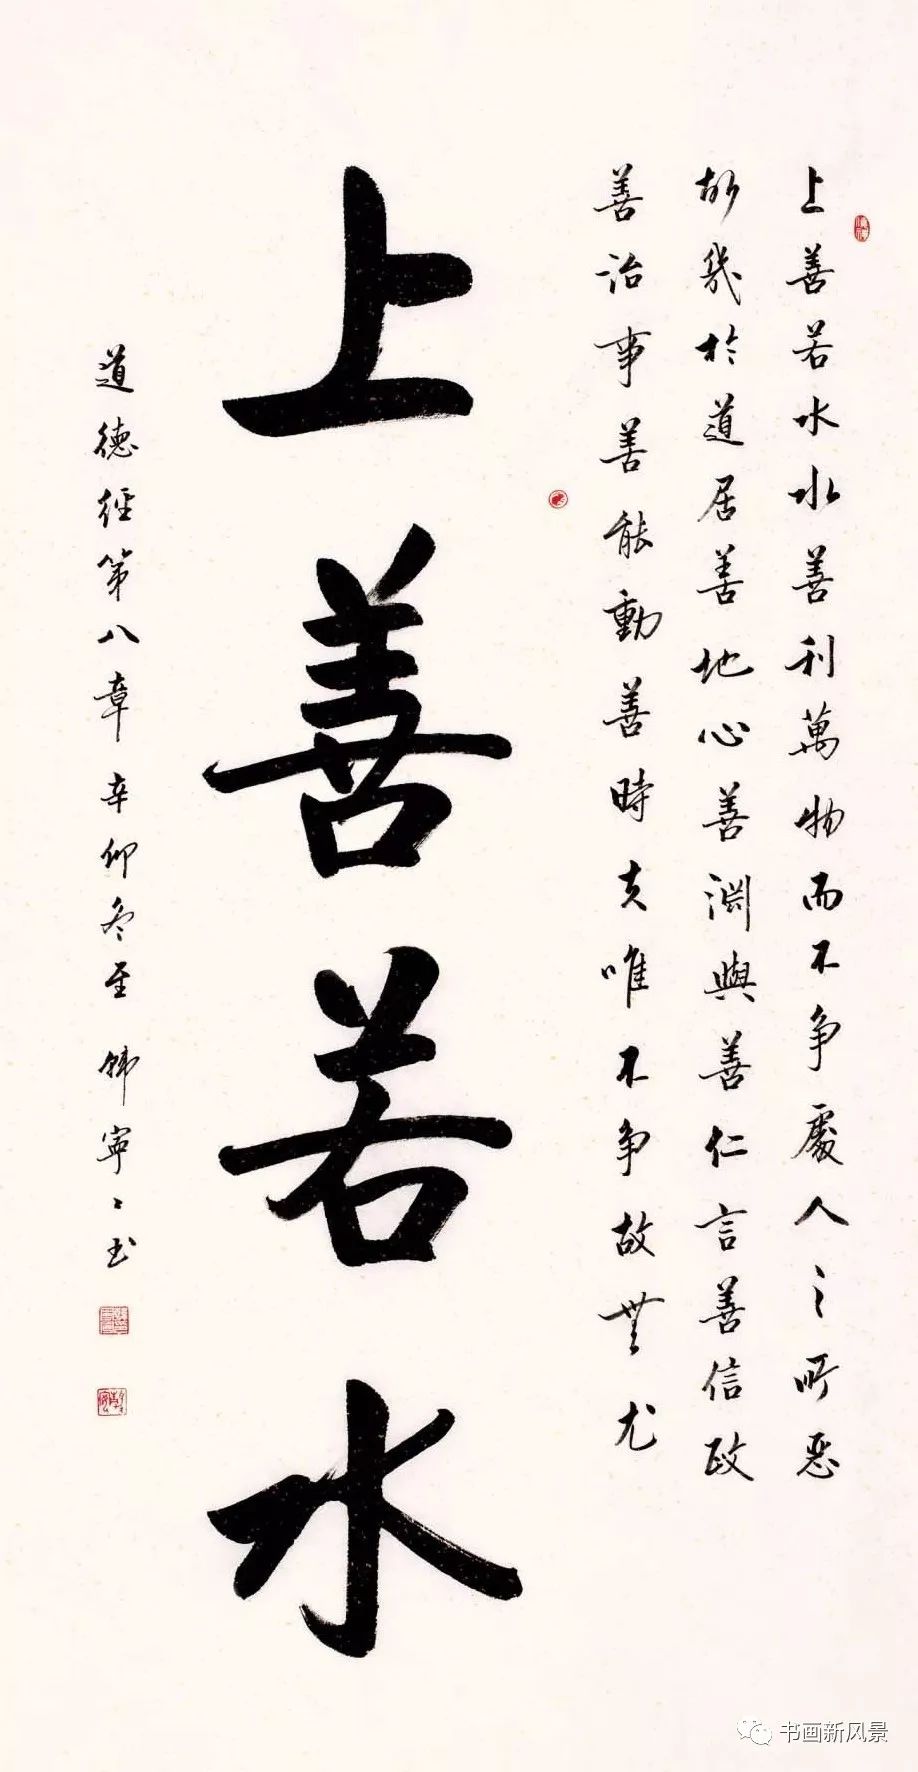 上善若水水善利萬物而不争處人之所惡
故幾於道居善地心善淵與善仁言善信政
善治事善能動善時夫唯不争故無尤
上善若水
道德經第八章 辛卯冬至 韓寧〻書
书画新风景